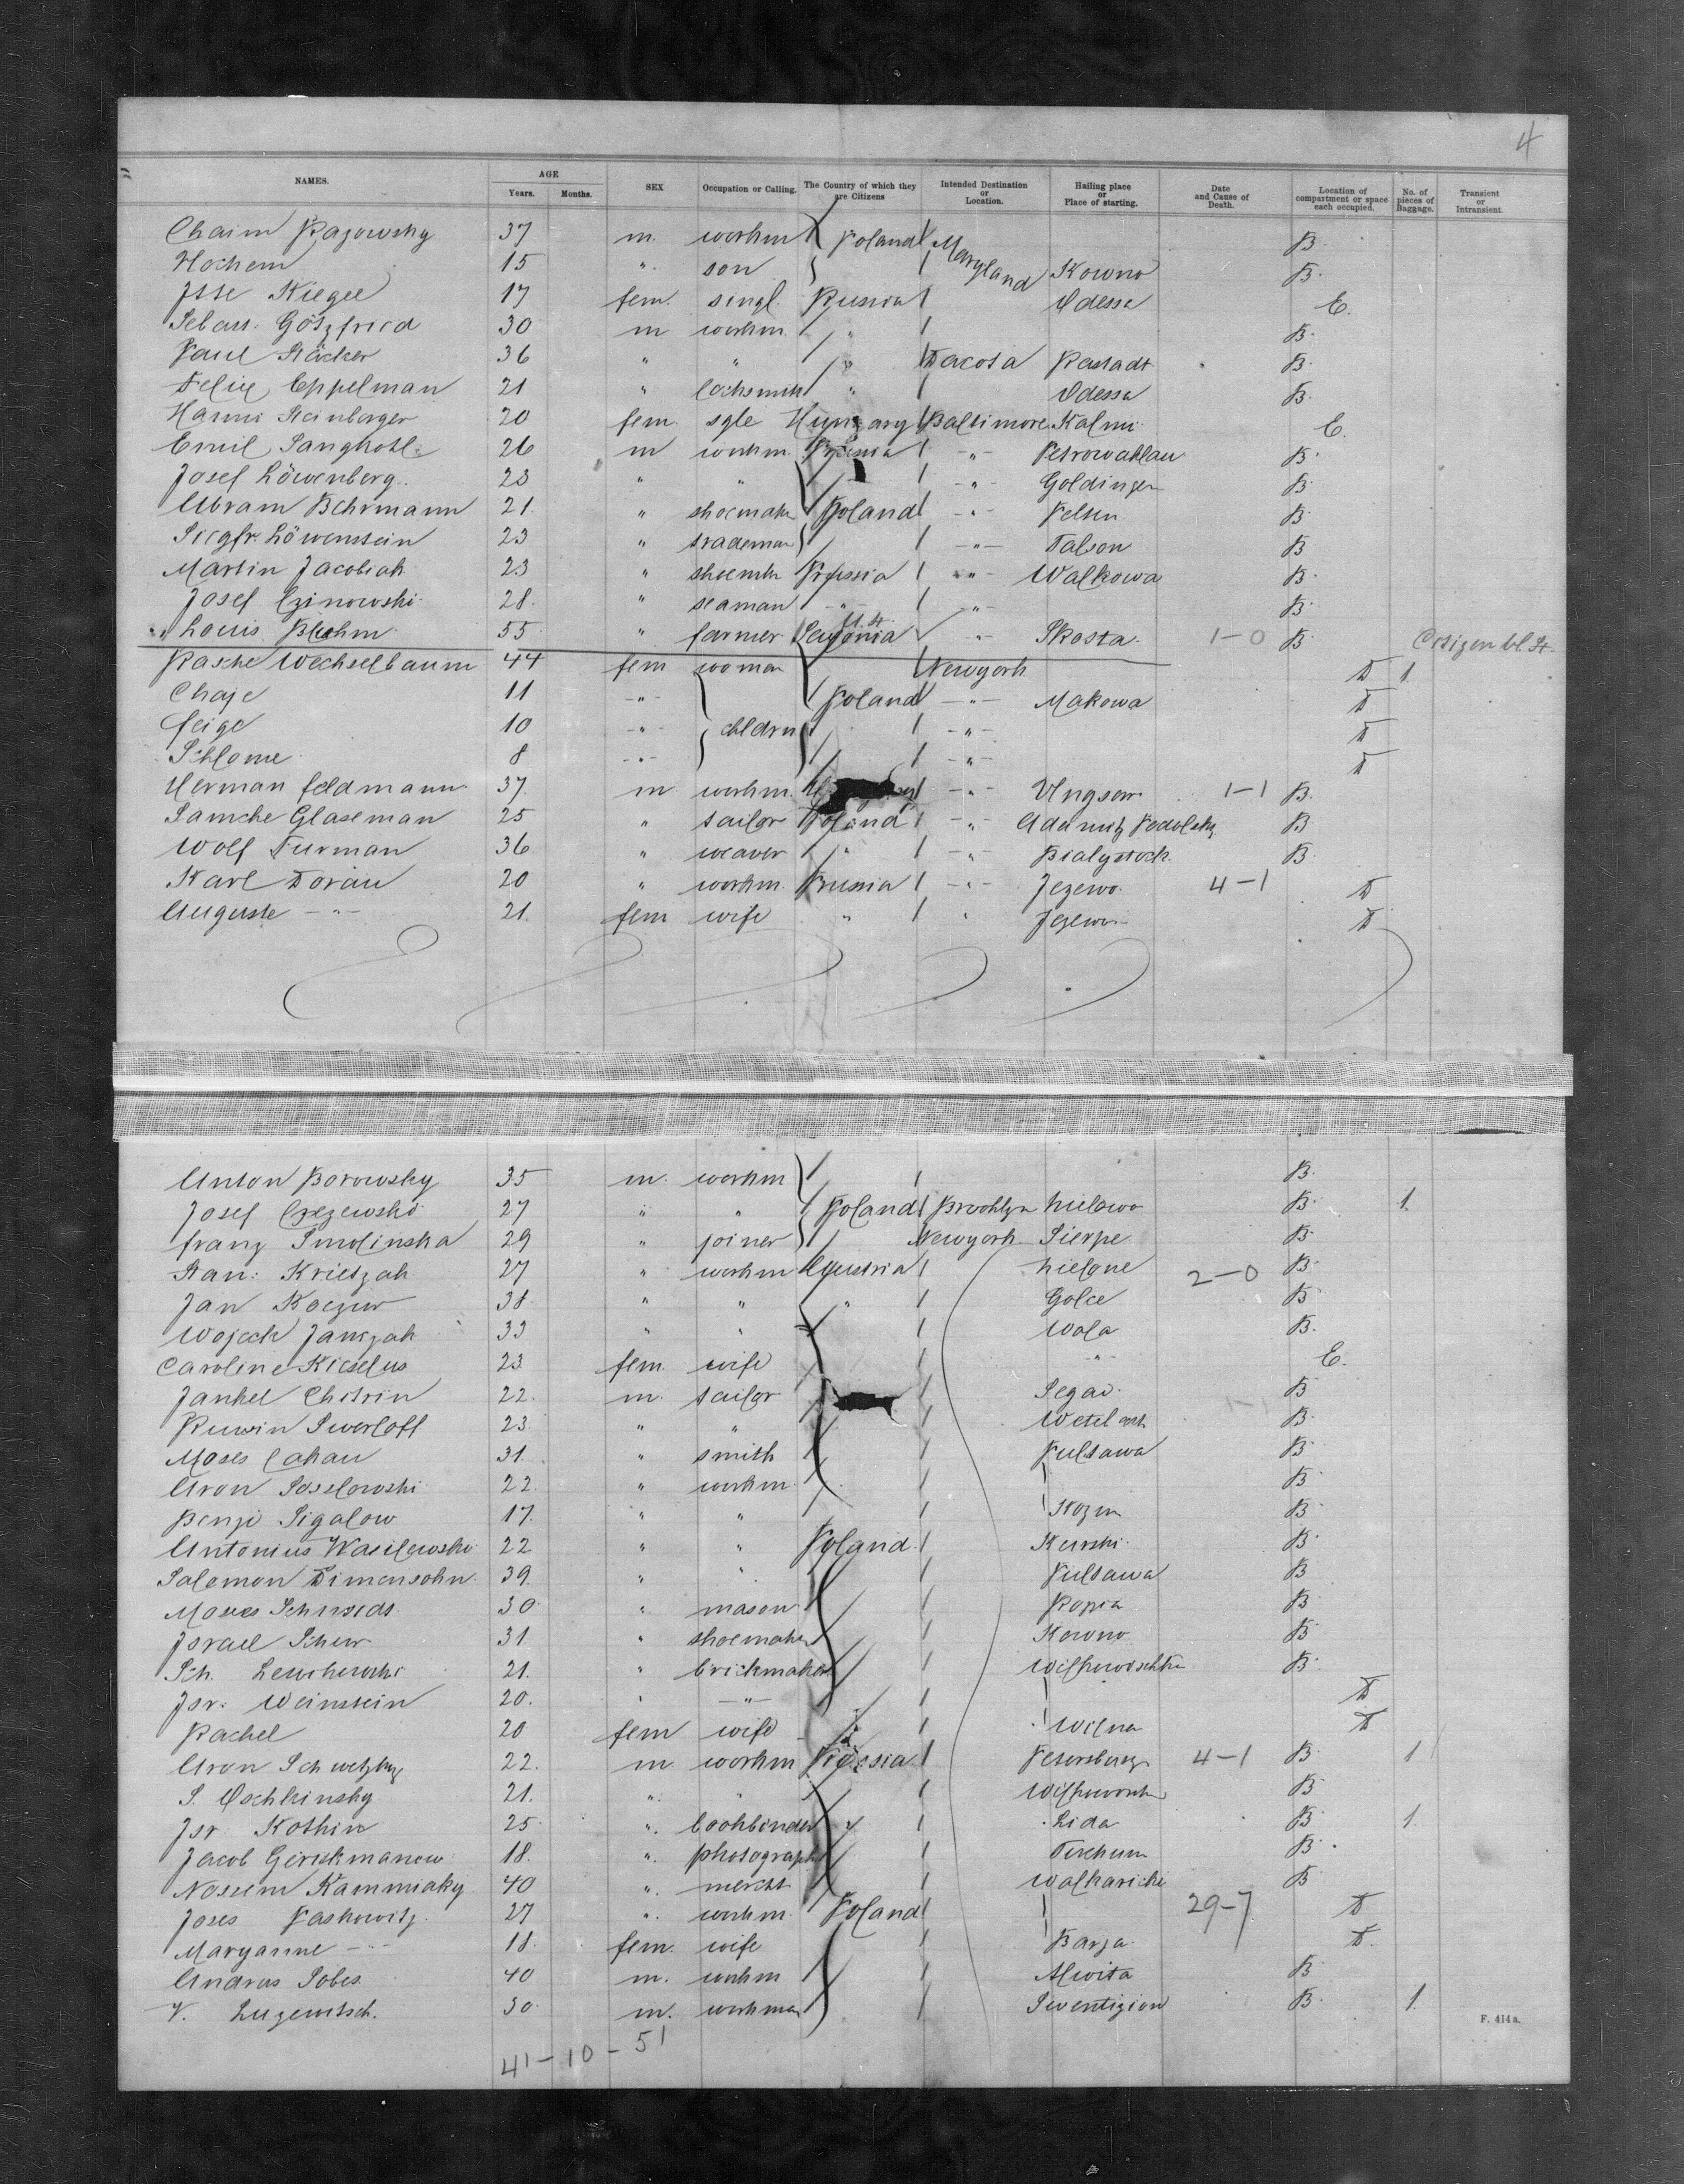 4
NAMES. AGE Years. Months. SEX Occupation or Calling. The Country of which they are Citizens Intended Destination or Location. Hailing place or Place of starting. Date and Cause of Death. Location of compartment or space each occupied. No. of pieces of Baggage. Transient or Intransient.
Chaim Razowsky 37 m. workm Poland Maryland B.
Nochem 15 " son Kowno B.
Isse Kiegel 17 fem. singl. Russia Odessa E.
Sebast. Götzfried 30 m workm. " B.
Paul Häcker 36 " " " Dacota Rastadt B.
Felix Eppelman 21 " locksmith " Odessa B.
Hanni Steinberger 20 fem. sgle Hungary Baltimore Kalmi E.
Emil 26 m workm. Russia -"- B.
Josef Löwenberg 23 " " -"- Goldingen B.
Abram Behrmann 21 " shoemaker Poland -"- B.
Siegfr. Löwenstein 23 " trademan -"- Talson B.
Martin Jacobiak 23 " shoemkr Prussia -"- Walkowa B.
Josef Czinowski 28. " seaman -"- -"- B.
Louis Bluhm 55 " farmer -"- Skosta. 1-0 B. Citizen U. St.
Rasche Wechselbaum 44 fem woman Newyork D 1.
Chaje 11 -"- Poland -"- Makowa D
Feige 10 -"- children -"- D
Schlome 8 -"- -"- D
Herman Feldmann 37. m workm. -"- 1-1 B.
Samche Glaseman 25 " tailor Poland -"- B
Wolf Furman 36 " weaver " -"- Bialystock. B.
Karl Dorau 20 " workm. Prussia -"- Jezewo. 4-1 D
Auguste -"- 21. fem wife " " Jezewo D
Anton Borowsky 35 m. workm B.
Josef Czezewski 27 " " Poland Brooklyn Mielowo B. 1.
Franz Smolinska 29 " joiner Newyork Sierpe B.
Stan. Krietzak 27 " workm Austria Mielone 2-0 B.
Jan Koczur 38. " " " Golce B.
Wojcech Janczak 33 " " Wola B.
Caroline Kieselus 23 fem. wife -"- E.
Jankel Chitrin 22. m. tailor B
Ruwin Swerloff 23. " " B.
Moses Cahan 31. " smith Pultawa B.
Aron Soselowski 22. " workm. B.
Benzi Sigalow 17. " " B.
Antonius Wasilewski 22 " " Poland. Kurski. B.
Salomon Dimensohn 39. " " Pultawa B
Moses Schmidt 30 " mason B.
Israel Schur 31 " shoemaker Kowno B.
Sch. 21. " brickmaker B.
Isr. Weinstein 20. " -"- D
Rachel 20 fem wife Wilna D
Aron 22. m workm Russia Petersburg 4-1 B. 1
S. Oschkinsky 21. " " B.
Isr. Kothin 25. " bookbinder " Lida B. 1.
Jacob Gerschmanow 18. " photograph B.
Nossem Kamminsky 40 " mercht B
Joses Paskowitz. 27 " workm. Poland 29-7 D
Maryanne -"- 18. fem. wife Barza D.
Andras Sobis. 40 m. workm B.
V. Luzewitsch. 30. m. workman Swentizion B. 1.
F. 414a.
41-10-51